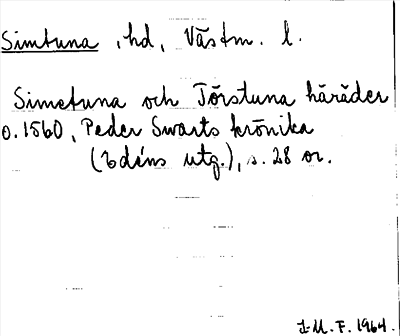 Simtuna, hd, Västm. l.
Simetuna och Törstuna häräder
o. 1560, Peder Swarts krönika
(Edéns utg.), s. 28 or.
J.M.F. 1964.